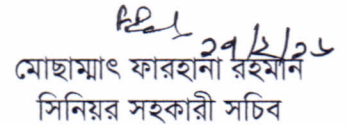 ২৭/২/২৬
মোছাম্মাৎ ফারহানা রহমান
সিনিয়র সহকারী সচিব